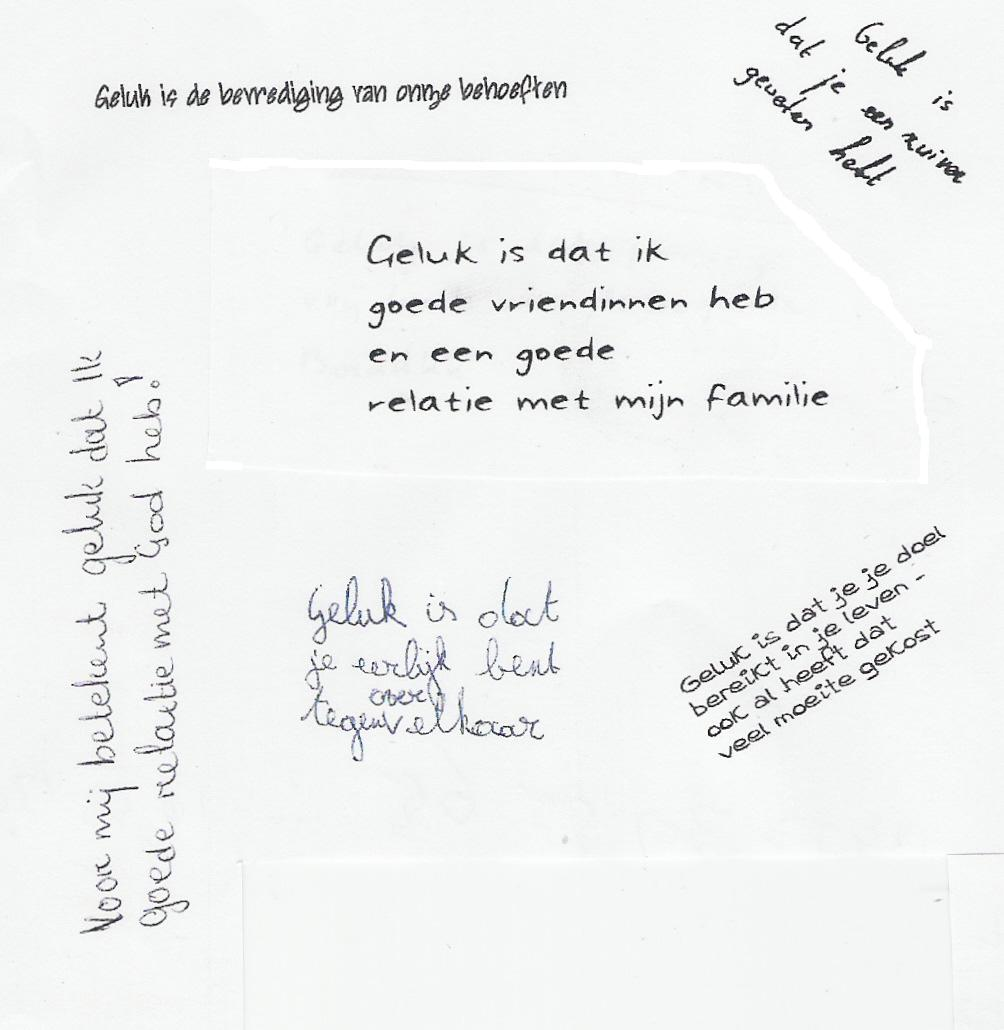 Geluk is de bevrediging van onze behoeften
Geluk is
dat je een zuiver
geweten hebt
Geluk is dat ik
goede vriendinnen heb
en een goede
relatie met mijn familie
Voor mij betekent geluk dat ik
goede relatie met God heb!
Geluk is dat
je eerlijk bent
tegenover elkaar
Geluk is dat je je doel
bereikt in je leven -
ook al heeft dat
veel moeite gekost